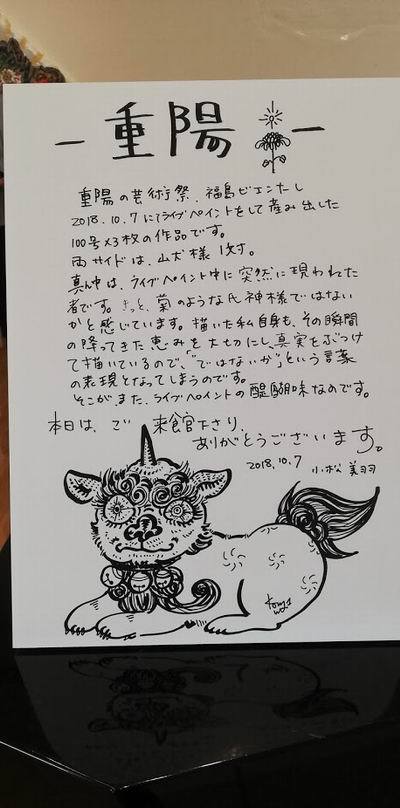 －重陽－
重陽の芸術祭、福島ビエンナーレ
2018.10.7にてライブペイントをして産み出した
100号×3枚の作品です。
両サイドは、山犬様1対。
真ん中は、ライブペイント中に突然に現われた
者です。きっと、菊のような氏神様ではない
かと感じています。描いた私自身も、その瞬間
の降ってきた恵みを大切にし真実をぶつけ
て描いているので、「ではないか」という言葉
の表現となってしまうのです。
そこが、また、ライブペイントの醍醐味なのです。
本日は、ご来館下さり、
ありがとうございます。
2018.10.7 小松美羽